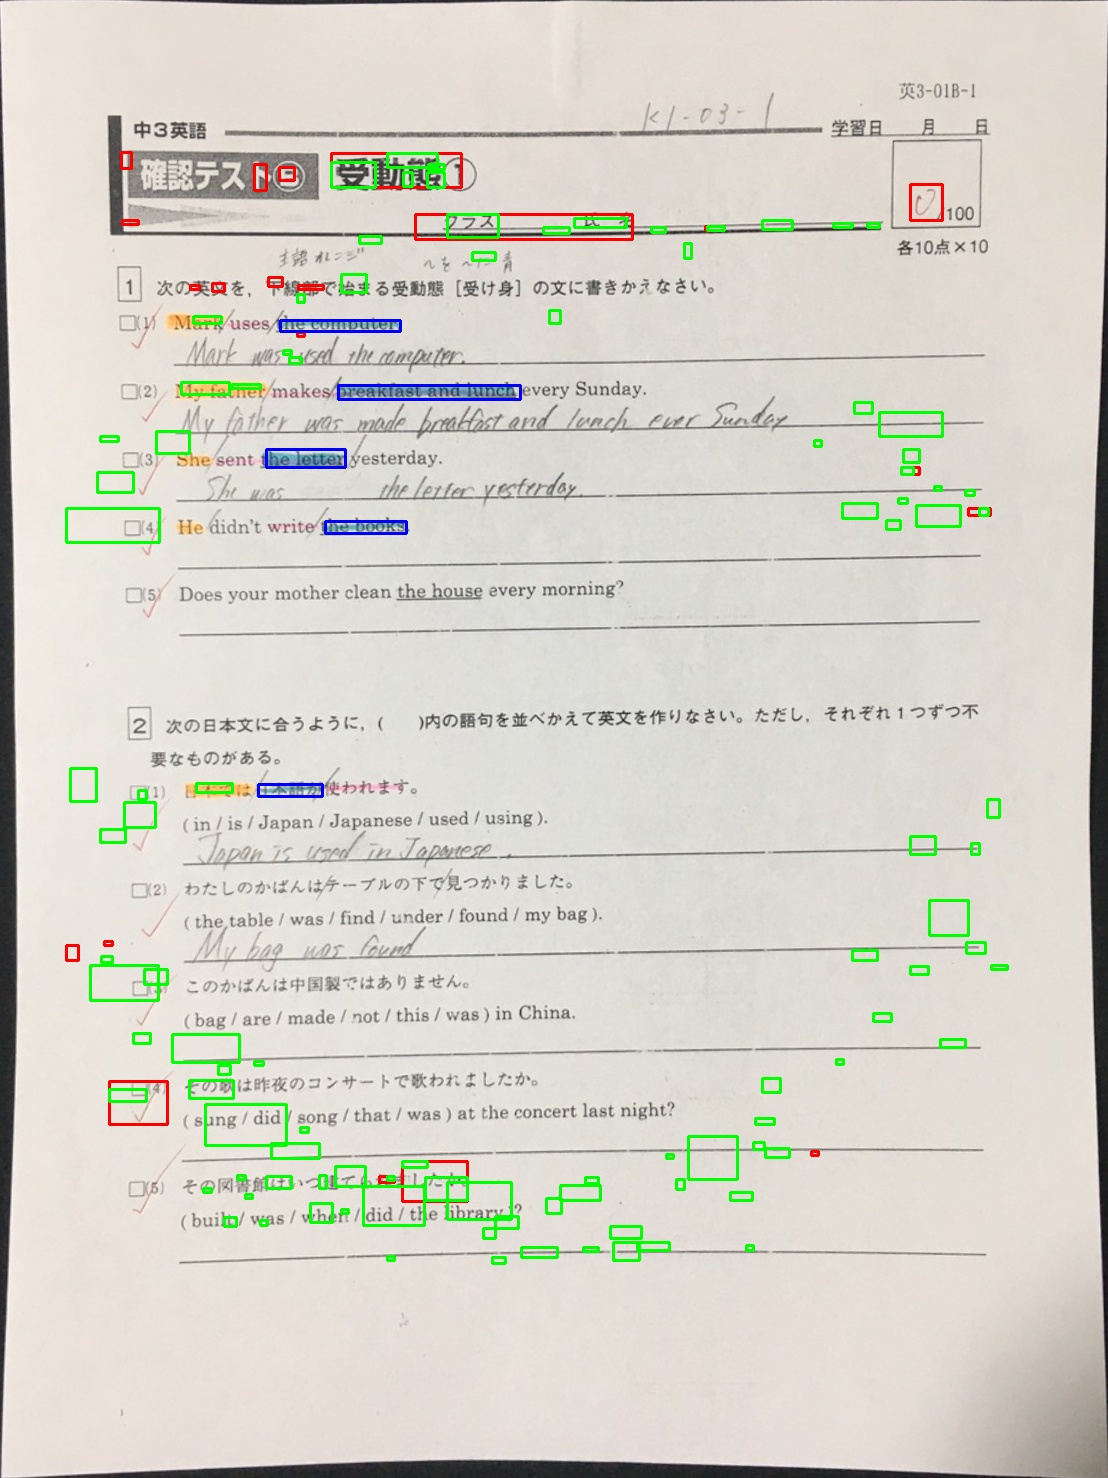 英3-01B-1
K1-03-1
中3英語 学習日 月 日
確認テスト 受動態①
クラス 氏名
0/100
各10点×10
主語 オレンジ 〜を 〜に 青
1 次の英文を，下線部で始まる受動態［受け身］の文に書きかえなさい。
□(1) Mark/uses/the computer.
Mark was used the computer.
□(2) My father/makes/breakfast and lunch/every Sunday.
My father was made breakfast and lunch ever Sunday
□(3) She/sent/the letter/yesterday.
She was the letter yesterday.
□(4) He/didn't write/the books.
□(5) Does your mother clean the house every morning?
2 次の日本文に合うように，( )内の語句を並べかえて英文を作りなさい。ただし，それぞれ1つずつ不
要なものがある。
□(1) 日本では/日本語が/使われます。
( in / is / Japan / Japanese / used / using ).
Japan is used in Japanese .
□(2) わたしのかばんは/テーブルの下で/見つかりました。
( the table / was / find / under / found / my bag ).
My bag was found
□(3) このかばんは中国製ではありません。
( bag / are / made / not / this / was ) in China.
□(4) その歌は昨夜のコンサートで歌われましたか。
( sung / did / song / that / was ) at the concert last night?
□(5) その図書館はいつ建てられましたか。
( built / was / when / did / the library )?